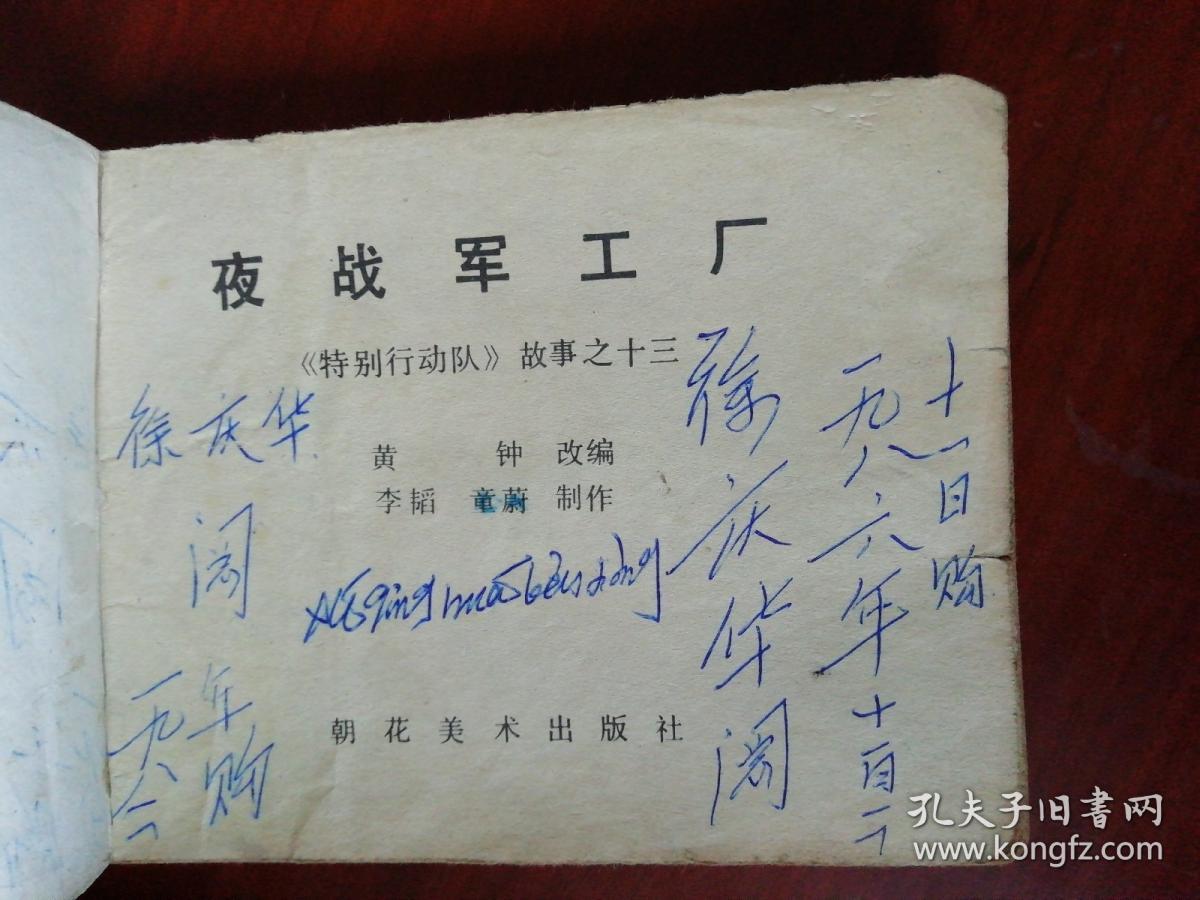 夜战军工厂
《特别行动队》故事之十三
黄 钟 改编
李韬 童蔚 制作
朝花美术出版社
徐庆华
阅
一九八六
年购
徐庆华阅
一九八六年十一月二
十一日购
孔夫子旧书网
www.kongfz.com